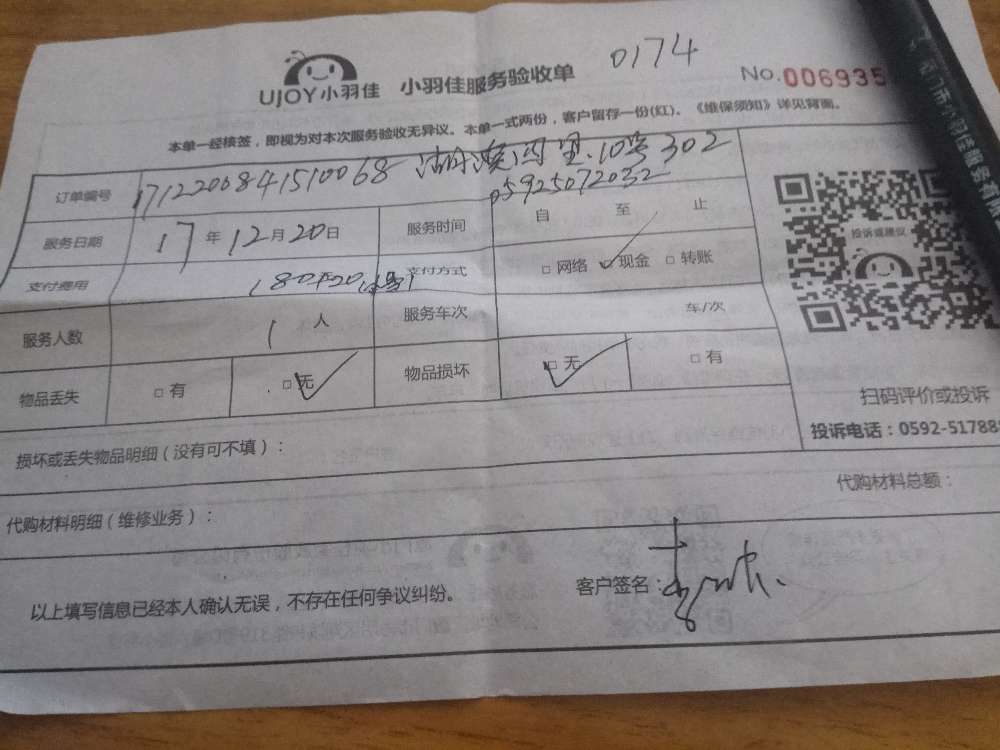 UJOY小羽佳 小羽佳服务验收单 0174
No.006935
本单一经核签，即视为对本次服务验收无异议。本单一式两份，客户留存一份(红)。《维保须知》详见背面。
订单编号 1712206841510068 湖滨四里.10号302
05925072032
服务日期 17年12月20日 服务时间 自 至 止
支付费用 180+20 支付方式 □网络 □现金 □转账
服务人数 1人 服务车次 车/次
物品丢失 □有 □无 物品损坏 □无 □有
投诉或建议
扫码评价或投诉
投诉电话：0592-51788
损坏或丢失物品明细（没有可不填）：
代购材料明细（维修业务）： 代购材料总额：
以上填写信息已经本人确认无误，不存在任何争议纠纷。 客户签名：